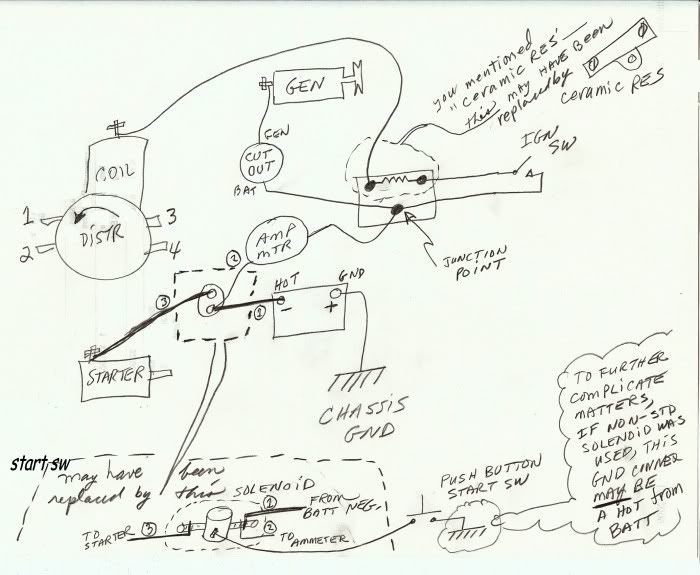 you mentioned
"Ceramic RES'
this may HAVE BEEN
replaced by
ceramic RES
IGN
SW
GEN
GEN
CUT
OUT
BAT
COIL
DISTR
1
2
3
4
AMP
MTR
JUNCTION
POINT
②
③
①
HOT
GND
-
+
STARTER
CHASSIS
GND
start sw
may have been
replaced by this
SOLENOID
①
FROM
BATT NEG.
②
TO
STARTER
③
TO AMMETER
PUSH BUTTON
START SW
TO FURTHER
COMPLICATE
MATTERS,
IF NON-STD
SOLENOID WAS
USED, THIS
GND CONNER
MAY BE
A HOT from
BATT